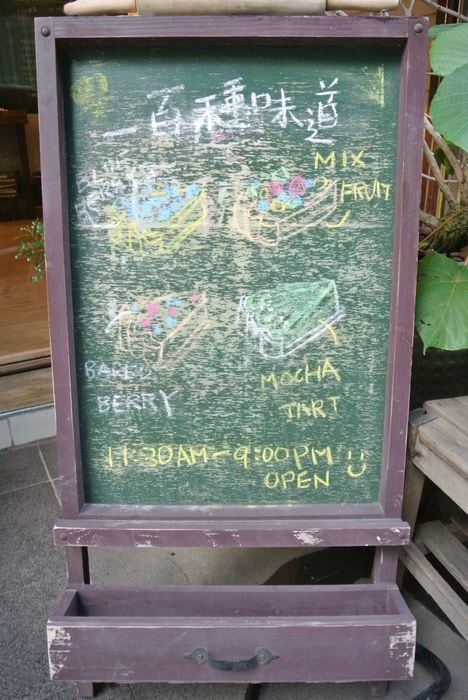 一百種味道
BLUE
BERRY
MIX
FRUIT
BAKED
BERRY
MOCHA
TART
11:30AM-9:00PM
OPEN